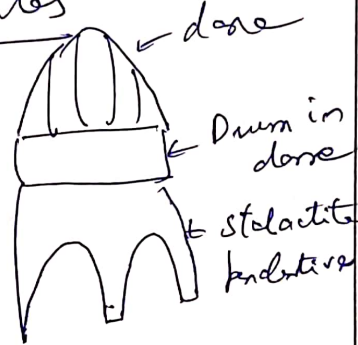 dome
Drum in
dome
stalactite
pendentive